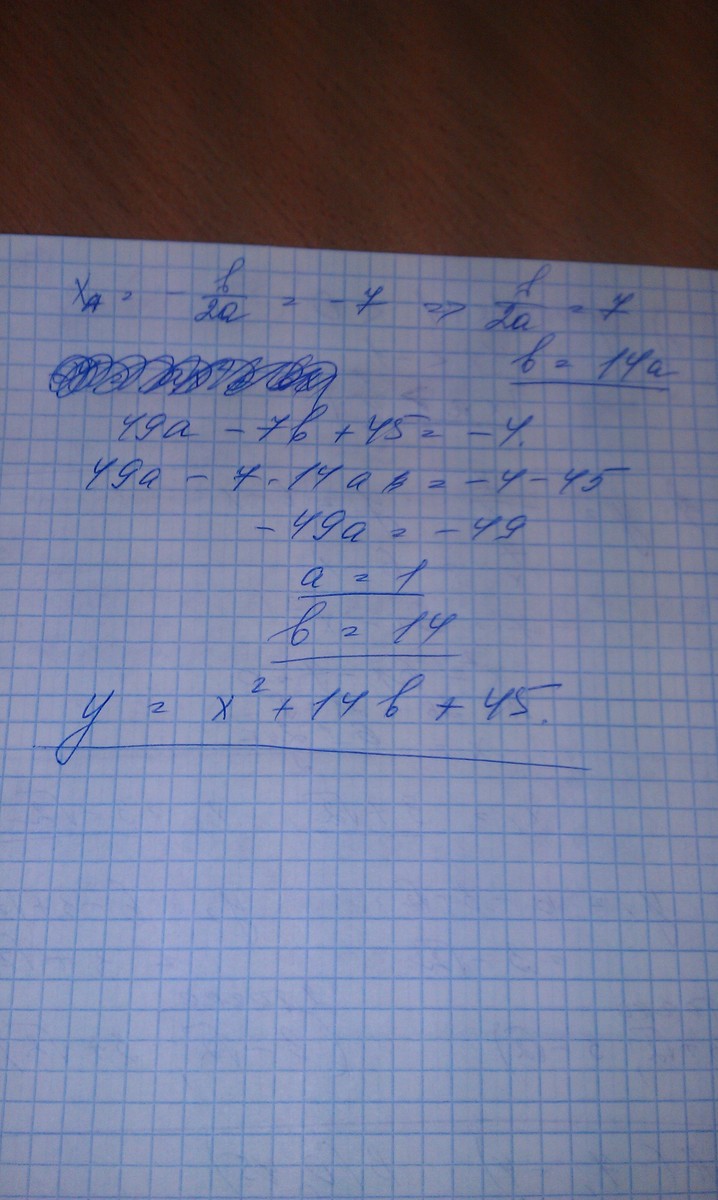 x_A = - b/2a = -7 => b/2a = 7
b = 14a
49a - 7b + 45 = -4.
49a - 7·14a = -4-45
-49a = -49
a = 1
b = 14
y = x² + 14b + 45.